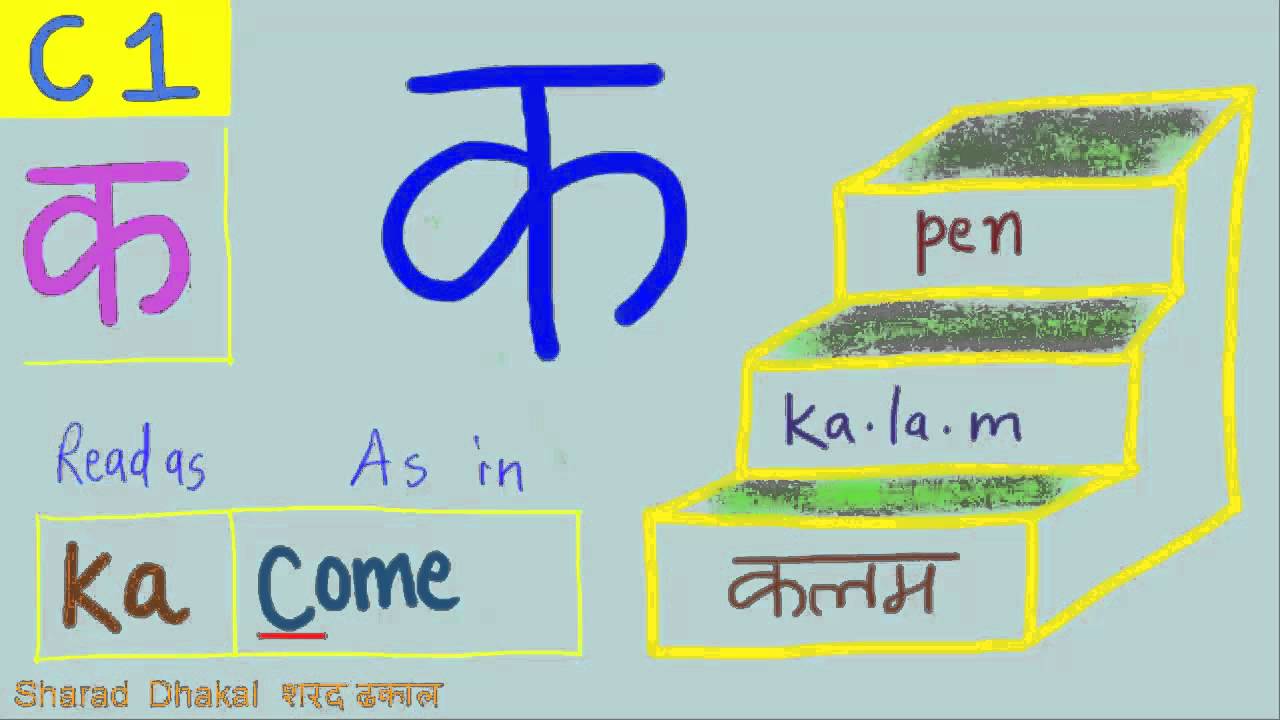 C 1
क
क
pen
ka.la.m
कलम
Read as As in
Ka Come
Sharad Dhakal शरद ढकाल